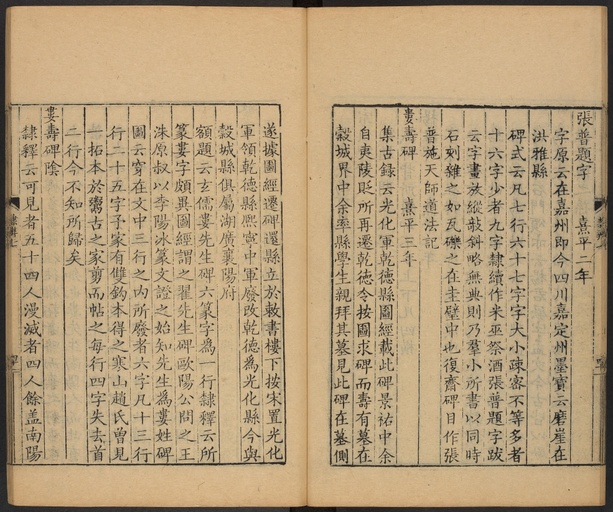 張普題字　熹平二年
字原云在嘉州即今四川嘉定州墨寶云磨崖在
洪雅縣
碑式云凡七行六十七字字大小疎密不等多者
十六字少者九字隸續作米巫祭酒張普題字跋
云字畫放縱欹斜略無典則乃羣小所書以同時
石刻雜之如瓦礫之在圭璧中也復齋碑目作張
普施天師道法記
婁壽碑　熹平三年
集古録云光化軍乾德縣圖經載此碑景祐中余
自夷陵貶所再遷乾德令按圖求碑而壽有墓在
穀城界中余率縣學生親拜其墓見此碑在墓側
遂據圖經遷碑還縣立於敕書樓下按宋置光化
軍領乾德縣熙寧中軍廢改乾德為光化縣今與
穀城縣俱屬湖廣襄陽府
額題云玄儒婁先生碑六篆字為一行隸釋云所
篆婁字頗異圖經謂之翟先生碑歐陽公問之王
洙原叔以李陽冰篆文證之始知先生為婁姓碑
圖云穿在文中三行之内所廢者六字凡十三行
行二十五字予家有雙鈎本得之寒山趙氏曾見
一拓本於鬻古之家剪而帖之每行四字失去首
二行今不知所歸矣
婁壽碑陰
隸釋云可見者五十四人漫滅者四人餘盖南陽